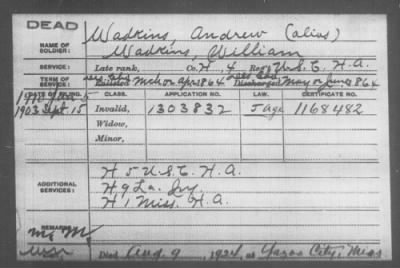 DEAD
Wadkins, Andrew (alias)
NAME OF SOLDIER:
Wadkins, William
SERVICE: Late rank, Co. H, 4 Reg't U.S.C. H.A.
TERM OF SERVICE: Enlisted Mch or Apr 1864 Discharged May or June, 1864
DATE OF FILING. CLASS. APPLICATION NO. LAW. CERTIFICATE NO.
1903 Sept. 15 Invalid, 1303832 J age 1168482
Widow,
Minor,
ADDITIONAL SERVICES:
H 5 U.S.C. H.A.
H 9 La. Inf.
H 1 Miss. H.A.
REMARKS:
Died Aug. 9, 1924, at Yazoo City, Miss